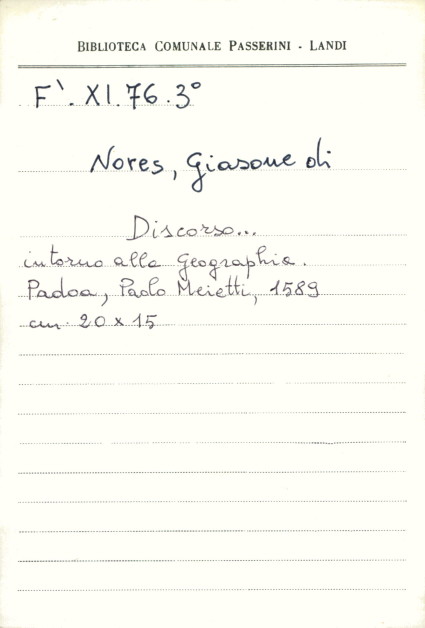 BIBLIOTECA COMUNALE PASSERINI - LANDI
F`. XI. 76. 3°
Nores, Giasone di
Discorso...
intorno alla Geographia.
Padoa, Paolo Meietti, 1589
cm. 20 x 15